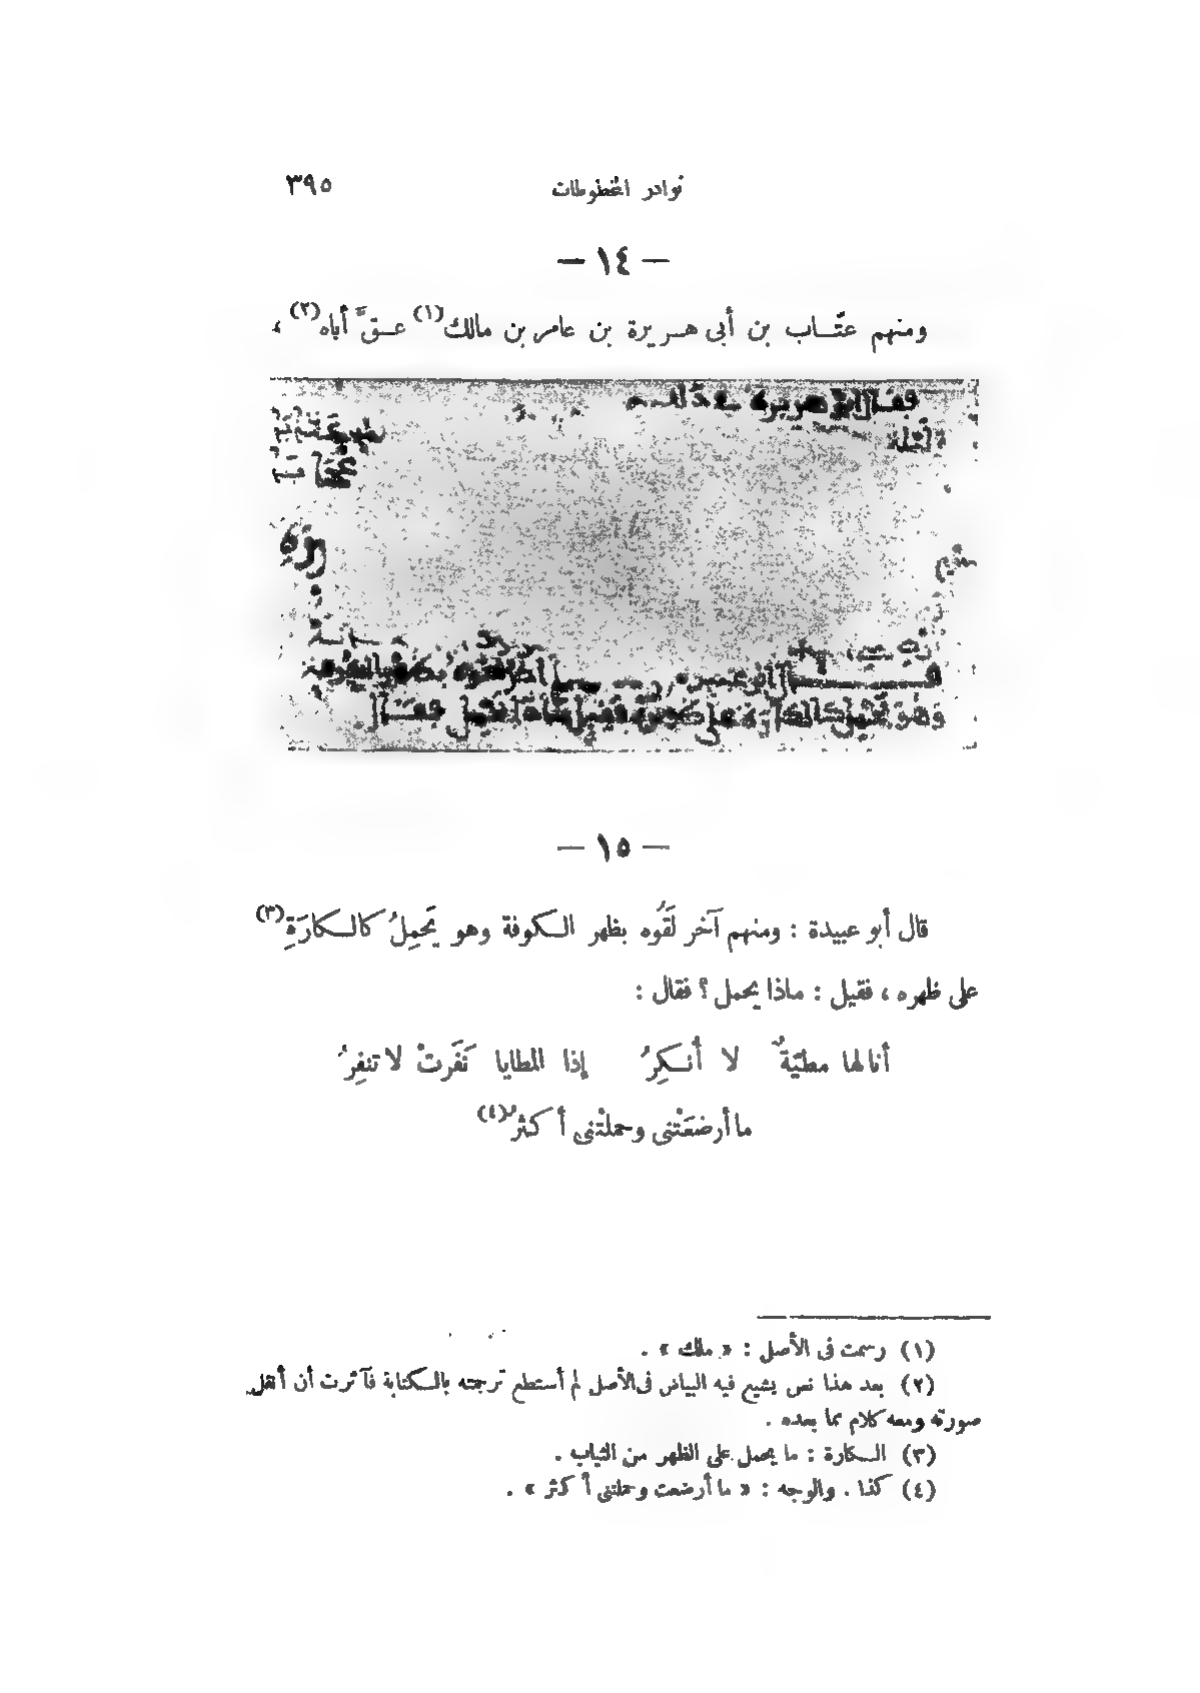 نوادر المخطوطات ٣٩٥
— ١٤ —
ومنهم عتّاب بن أبى هريرة بن عامر بن مالك(١) عقّ أباه(٢) ،
فقال أبو هريرة فى ذلك
وهو يحمل كالكارة على ظهره فقيل ماذا يحمل فقال
— ١٥ —
قال أبو عبيدة : ومنهم آخر لَقُوه بظهر الكوفة وهو يَحمِلُ كالكارَةِ(٣)
على ظهره ، فقيل : ماذا يحمل ؟ فقال :
أنا لها مطيّةٌ لا أنكِرُ إذا المطايا نَفَرتْ لا تنفِرُ
ما أرضعَتْنى وحملتْنى أكثرُ(٤)
(١) رسمت فى الأصل : « ملك » .
(٢) بعد هذا نص يشيع فيه البياض فى الأصل لم أستطع ترجمته بالكتابة فآثرت أن أنقل
صورته ومعه كلام مما بعده .
(٣) الكارة : ما يحمل على الظهر من الثياب .
(٤) كذا . والوجه : « ما أرضعت وحملتنى أكثر » .